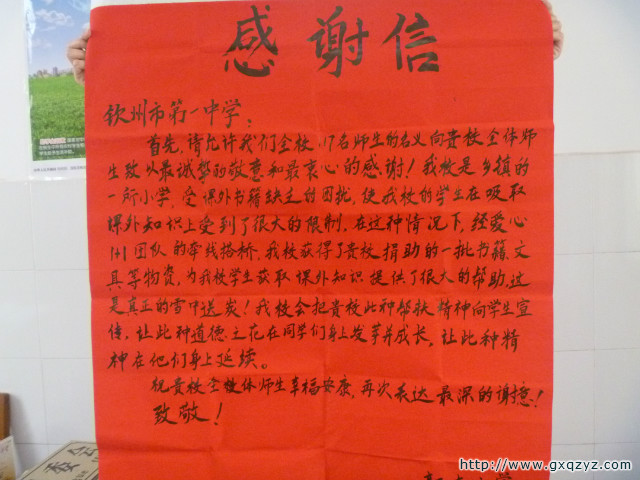 感谢信
钦州市第一中学：
首先，请允许我们全校117名师生的名义向贵校全体师
生致以最诚挚的敬意和最衷心的感谢！我校是乡镇的
一所小学，受课外书籍缺乏的困扰，使我校的学生在吸取
课外知识上受到了很大的限制，在这种情况下，经爱心
1+1团队的牵线搭桥，我校获得了贵校捐助的一批书籍、文
具等物资，为我校学生获取课外知识提供了很大的帮助，这
是真正的雪中送炭！我校会把贵校此种帮扶精神向学生宣
传，让此种道德之花在同学们身上发芽并成长，让此种精
神在他们身上延续。
祝贵校全校体师生幸福安康，再次表达最深的谢意！
致敬！
http://www.gxqzyz.com